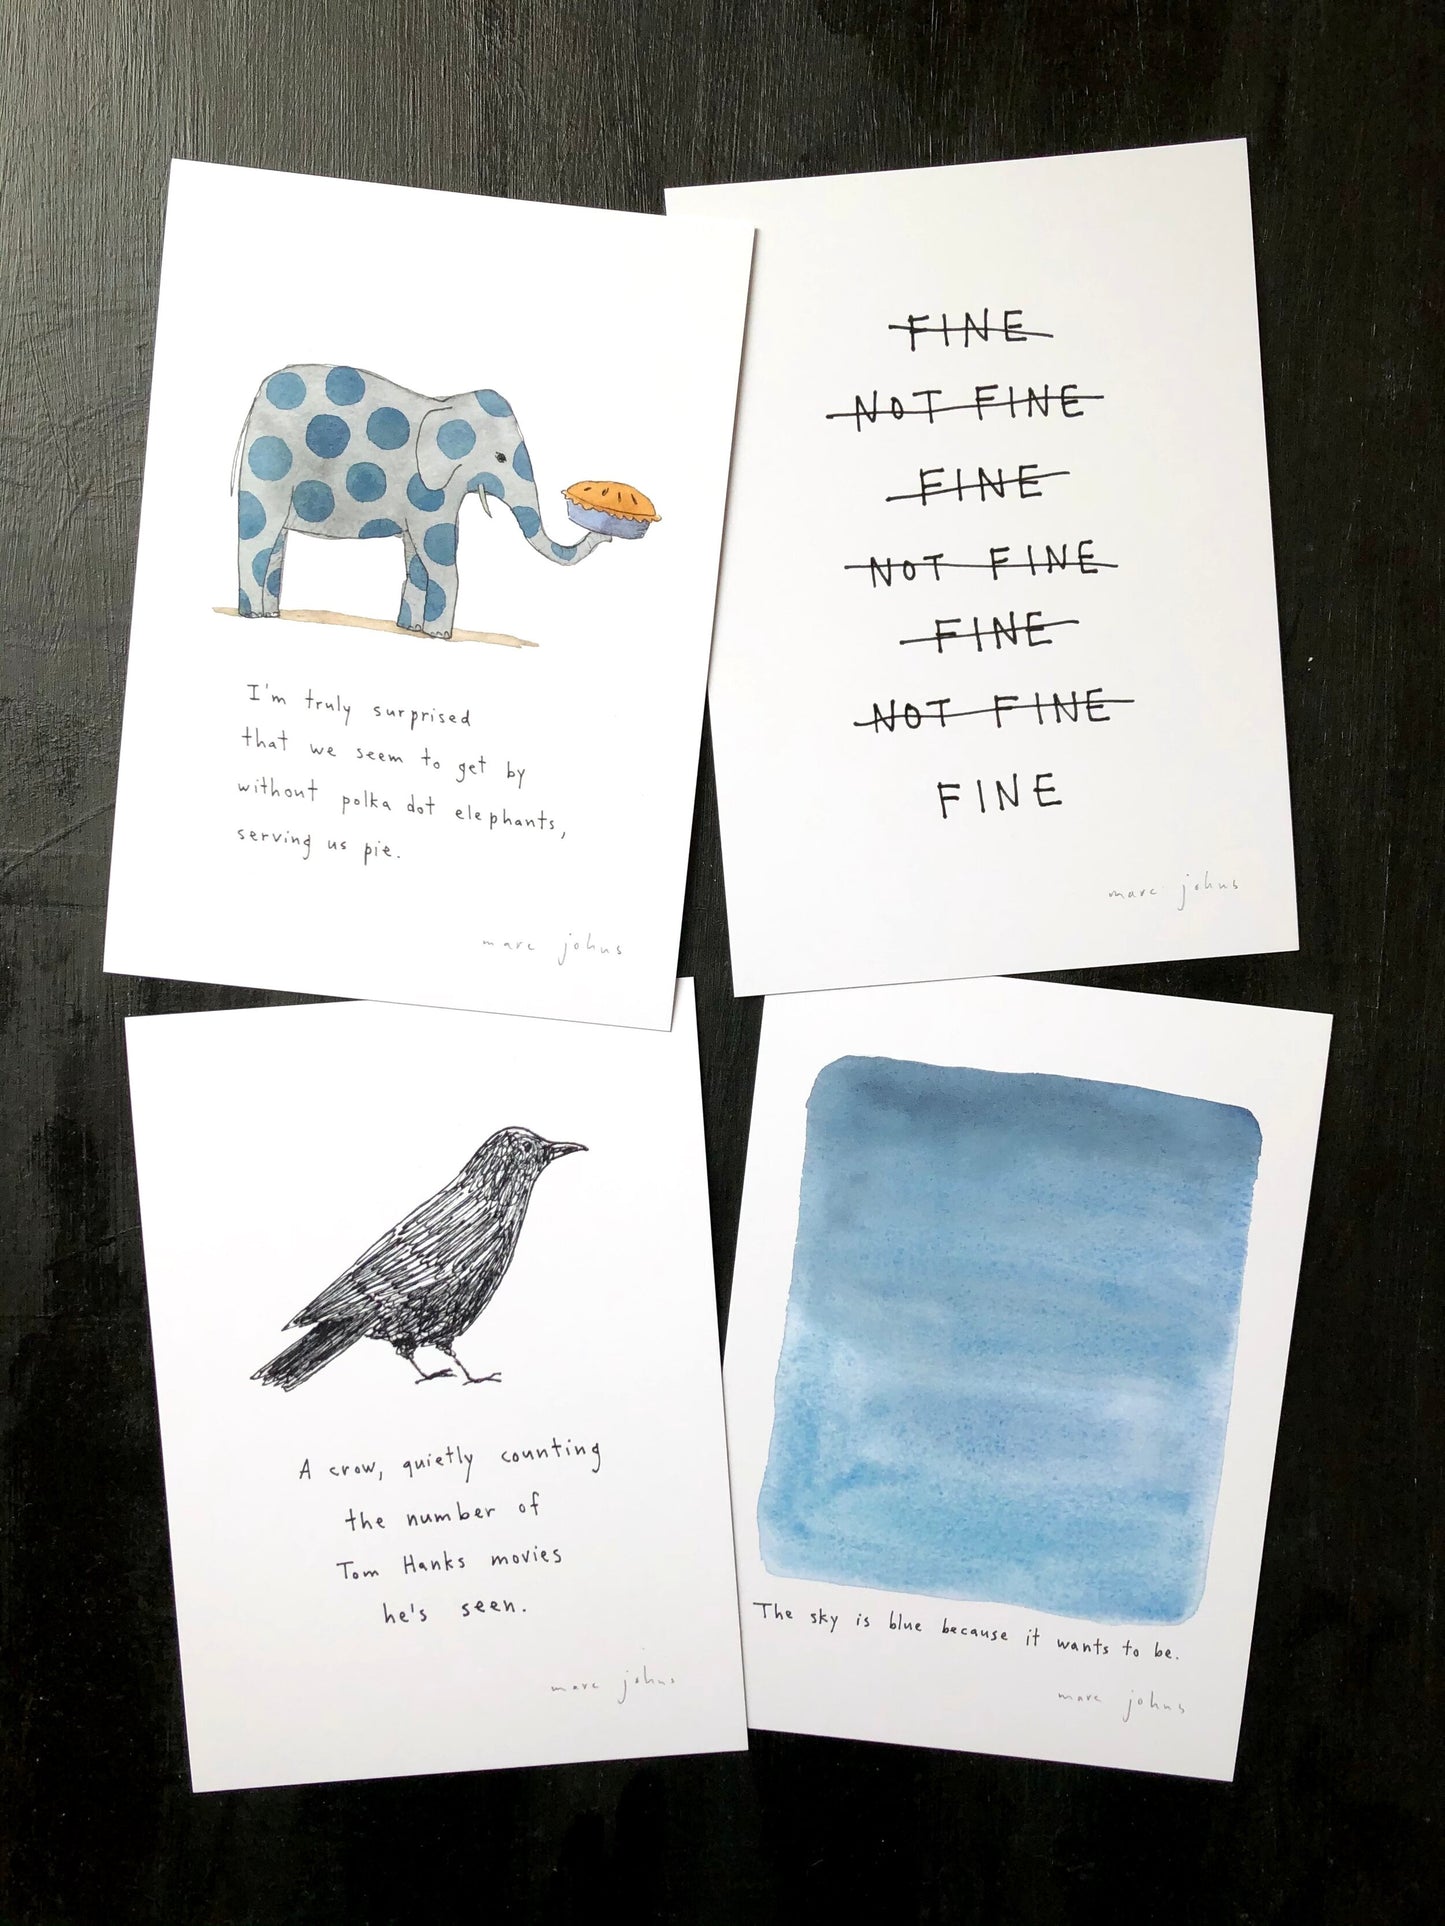 I'm truly surprised
that we seem to get by
without polka dot elephants,
serving us pie.
marc johns
FINE
NOT FINE
FINE
NOT FINE
FINE
NOT FINE
FINE
marc johns
A crow, quietly counting
the number of
Tom Hanks movies
he's seen.
marc johns
The sky is blue because it wants to be.
marc johns